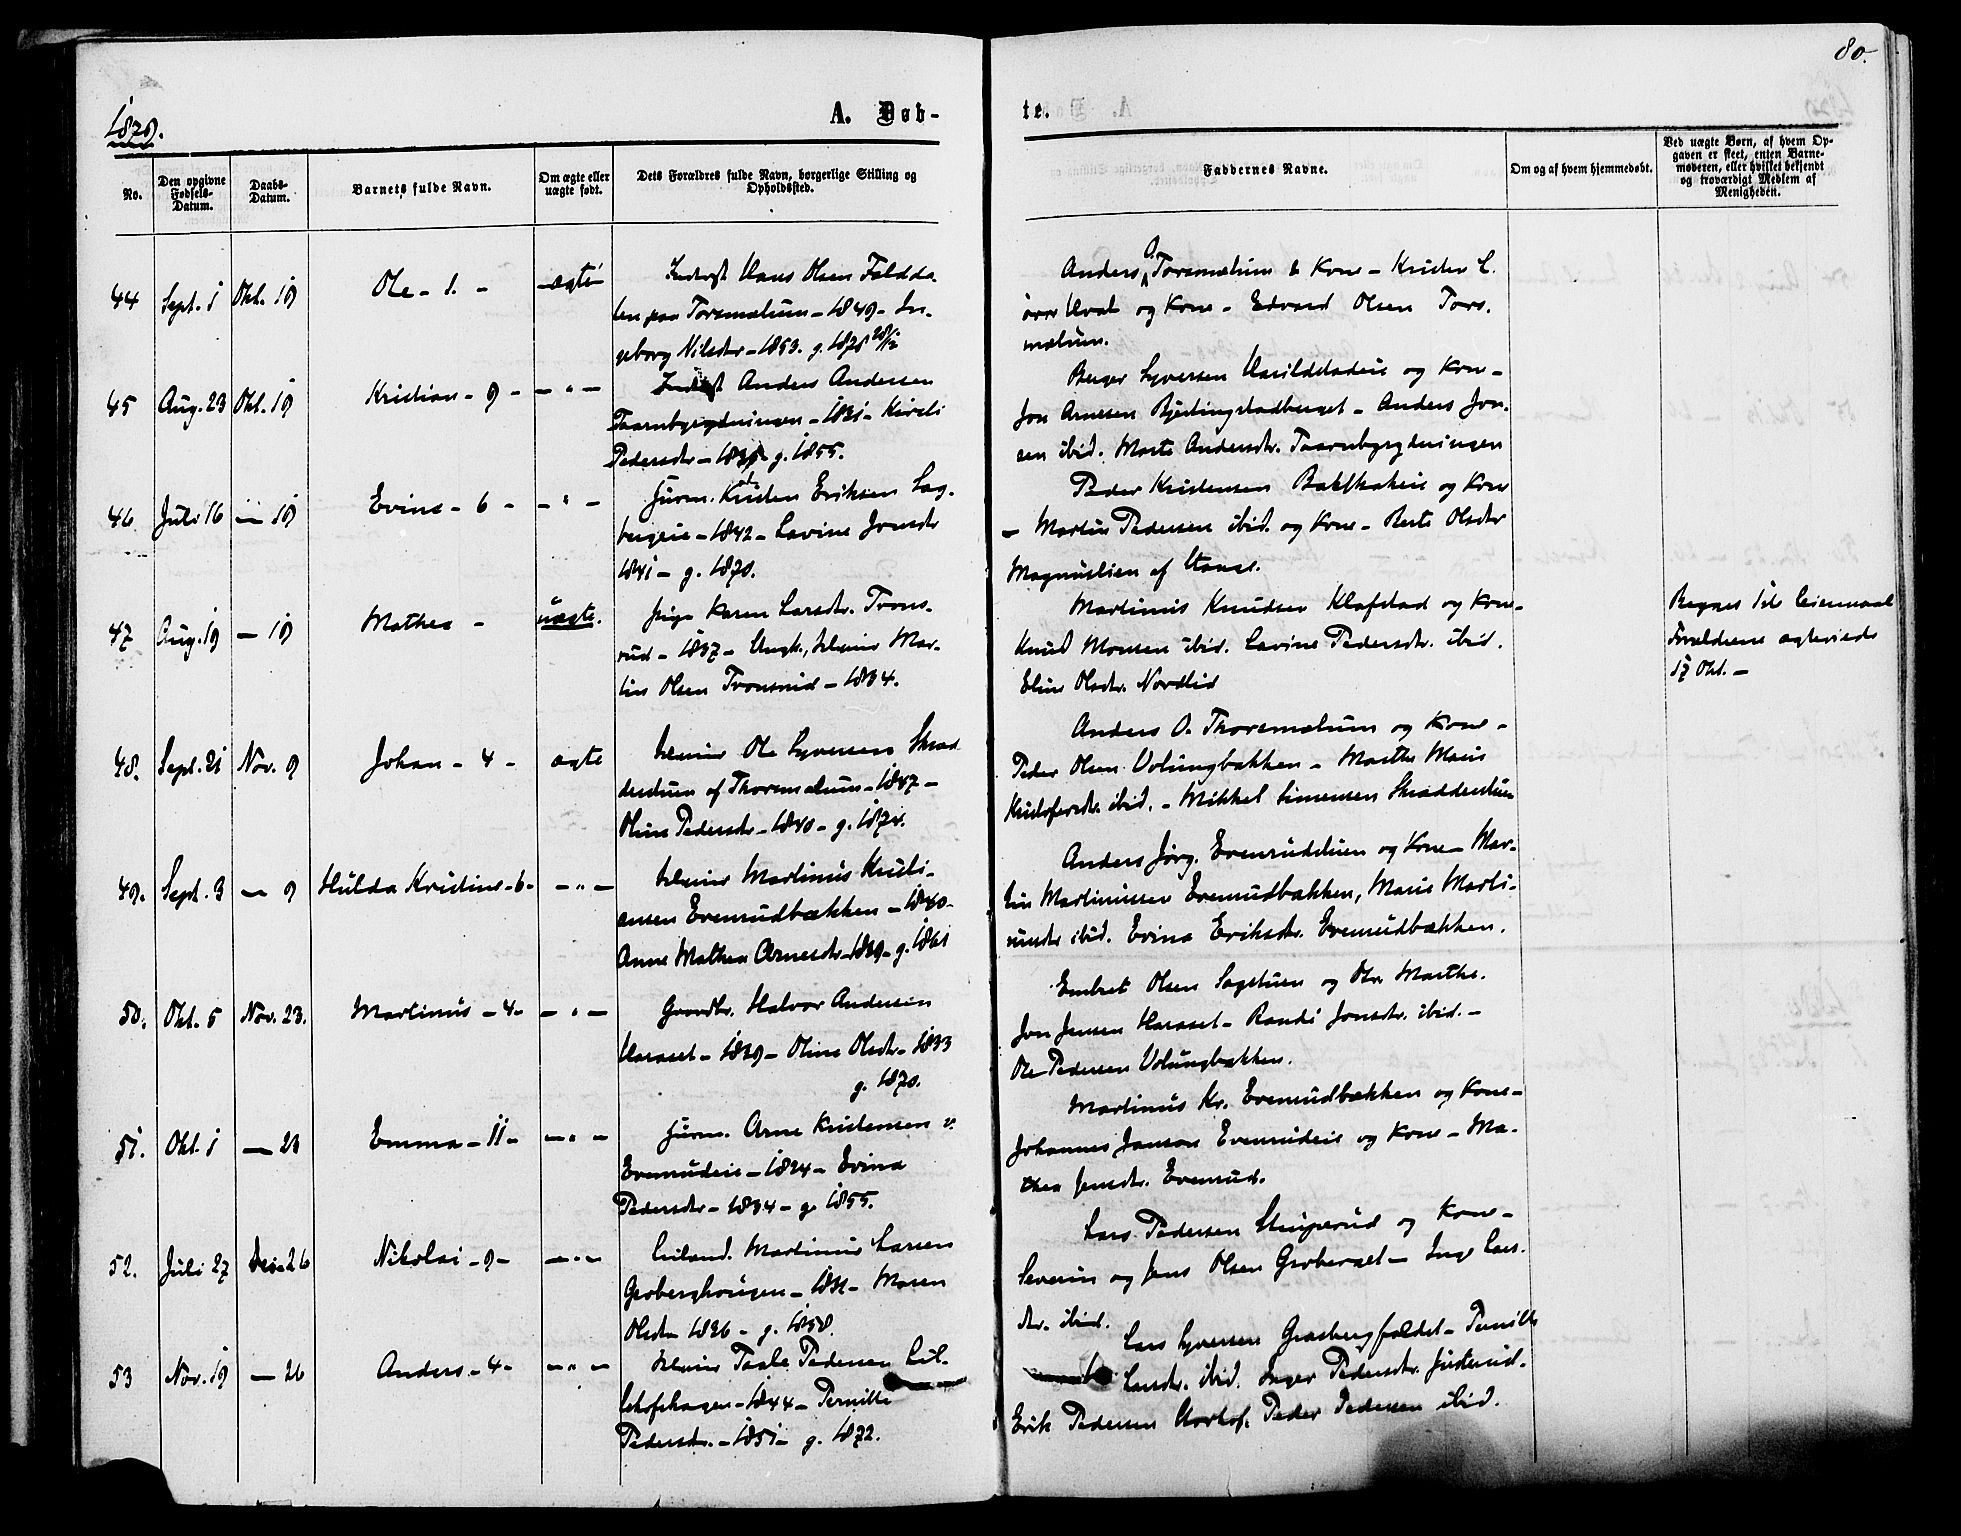 80.
1879.
A. Døb-
te.
No.
Den opgivne Fødsels-Datum.
Daabs-Datum.
Barnets fulde Navn.
Om ægte eller uægte født.
Dets Forældres fulde Navn, borgerlige Stilling og Opholdssted.
Faddernes Navne.
Om og af hvem hjemmedøbt.
Ved uægte Børn, af hvem Op-
gaven er skeet, enten Barne-
moderen, eller hvilket bekjendt
og troværdigt Medlem af
Menigheden.
44 Sept. 1 Okt. 19 Ole - 1. - ægte
Hans Olsen
paa Torsmælum - 1849 - In-
geborg Nilsdtr - 1853. g. 1878
Anders O. Torsmælum & Kone -
og Kone - Edvard Olsen Tors-
mælum.
45 Aug. 23 Okt. 19 Kristian - 9 - - " -
Inderst Anders Andersen
Taarnbyrydningen - 1831 - Kirsti
Pedersdtr - g. 1855.
Berger Syversen og Kone -
Jon Arnesen Bjertingstadberget - Anders Jon-
sen ibid. Marte Andersdtr. Taarnbyrydningen
46 Juli 16 - 19 Evine - 6 - - " -
Eriksen Sag-
- 1842 - Lavine Jonsdtr
1841 - g. 1870.
Peder Kristensen og Kone
- Martin Pedersen ibid. og Kone - Berte Olsdtr
Magnuslien af
47 Aug. 19 - 19 Mathea - uægte.
Pige Karen Larsdtr. Trons-
rud - 1837 - Ungk., Mar-
tin Olsen Tronsrud - 1834.
Martinus Knudsen Klofstad og Kone -
Knud Monsen ibid. Lavine Pedersdtr. ibid.
Eline Olsdtr. Nordlid
Forældrene ægteviede
17 Okt. -
48. Sept. 21 Nov. 9 Johan - 4 - ægte
Ole Syversen Skræd
derstuen af Thorsmælum - 1847 -
Oline Pedersdtr - 1840 - g. 1874.
Anders O. Thorsmælum og Kone -
Peder Olsen Volungbakken - Marthe Marie
Kristofersdtr. ibid. - Mikkel Simensen Skrædderstuen
49. Sept. 3 - 9 Hulda Kristine - 6 - - " -
Martinus Kristi-
ansen Evensrudbækken - 1840 -
Anne Mathea Arnesdtr - 1839 - g. 1861
Anders Jørg. Evensrudstuen og Kone - Mar-
tin Martinussen Evensrudbækken, Marie Marti-
nusdtr ibid. Evina Eriksdtr. Evensrudbækken.
50. Okt. 5 Nov. 23. Martinus - 4 - - " -
Gaardbr. Halvor Andersen
Haraset - 1839 - Oline Olsdtr - 1833
g. 1870.
Embret Olsen Sagstuen og Marthe.
Jon Jensen Haraset - Randi Jonsdtr. ibid. -
Ole Pedersen Volungbakken.
51. Okt. 1 - 23 Emma - 11 - - " -
Arne Kristensen
Evensrudeie - 1834 - Evina
Pedersdtr - 1834 - g. 1855.
Martinus Kr. Evensrudbækken og Kone -
Johannes Jansen Evensrudeie og Kone - Ma-
thea Jensdtr. Evensrud.
52. Juli 27 Des. 26 Nikolai - 9 - - " -
Martinus Larsen
Groberghougen - Maren
Olsdtr 1836 - g. 1858.
Lars Pedersen Struperud og Kone -
Severin og Jens Olsen - Inge Lars-
dtr. ibid.
53 Nov. 19 - 26 Anders - 4 - - " -
Pedersen
- 1844 - Pernille
Pedersdtr. - 1851 - g. 1872.
Lars Syversen - Pernille
Larsdtr. ibid. Inger Pedersdtr. Justnrud.
Erik Pedersen Peder Pedersen ibid.